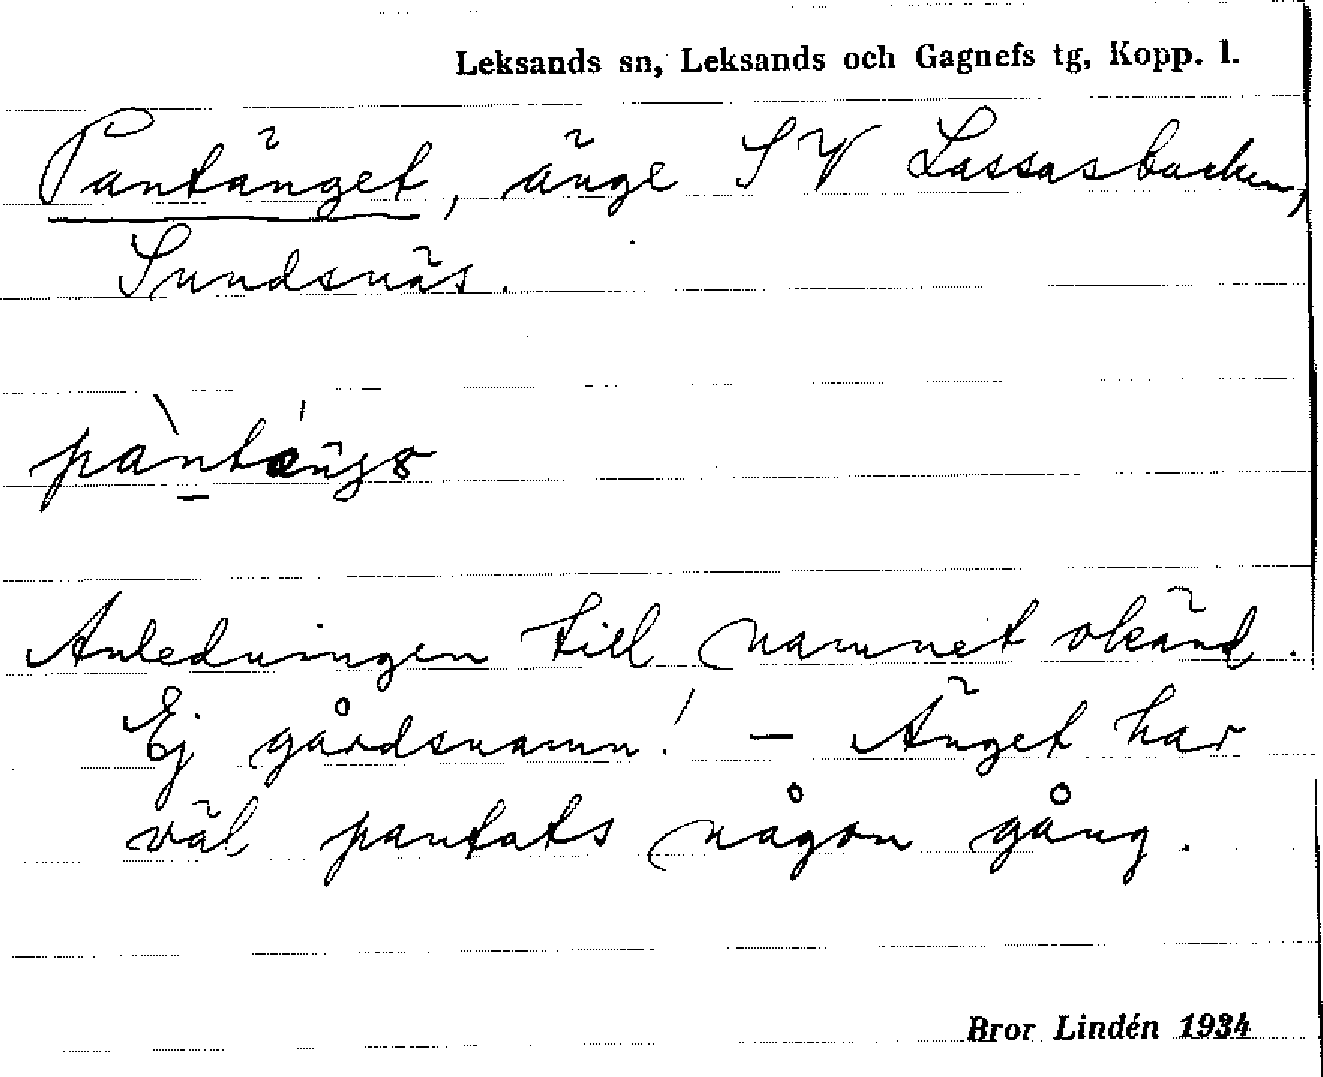 Leksands sn, Leksands och Gagnefs tg, Kopp. l.
Pantänget, änge SV Lassasbacken,
Sundsnäs.
Anledningen till namnet okänd.
Ej gårdsnamn! — Änget har
väl pantats någon gång.
Bror Lindén 1934